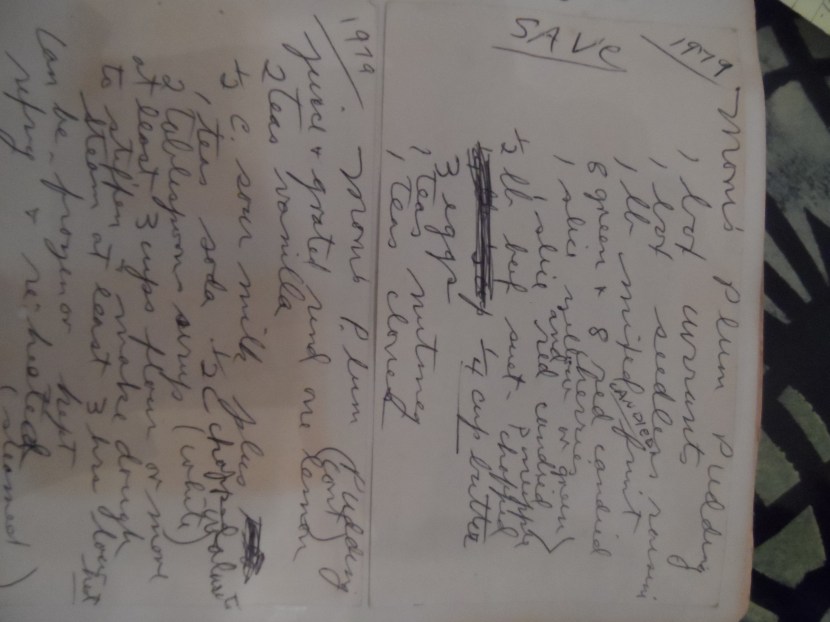 1979
SAVE
Mom's Plum Pudding
1 box currants
1 box seedless raisins
1 lb mixed fruit
8 green & 8 red candied cherries
1 slice yellow or green
1 slice red candied
and pineapple
½ lb beef suet - chopped
¼ cup butter
3 eggs
1 teas nutmeg
1 teas cloves
1979
Mom's Plum Pudding
(cont)
juice & grated rind one lemon
2 teas vanilla
½ c. sour milk plus
1 teas soda ½ c chopped
2 tablespoons syrup (white)
at least 3 cups flour or more
to stiffen & make dough
steam at least 3 hrs
Can be frozen or kept
refrig & re-heated (steamed)